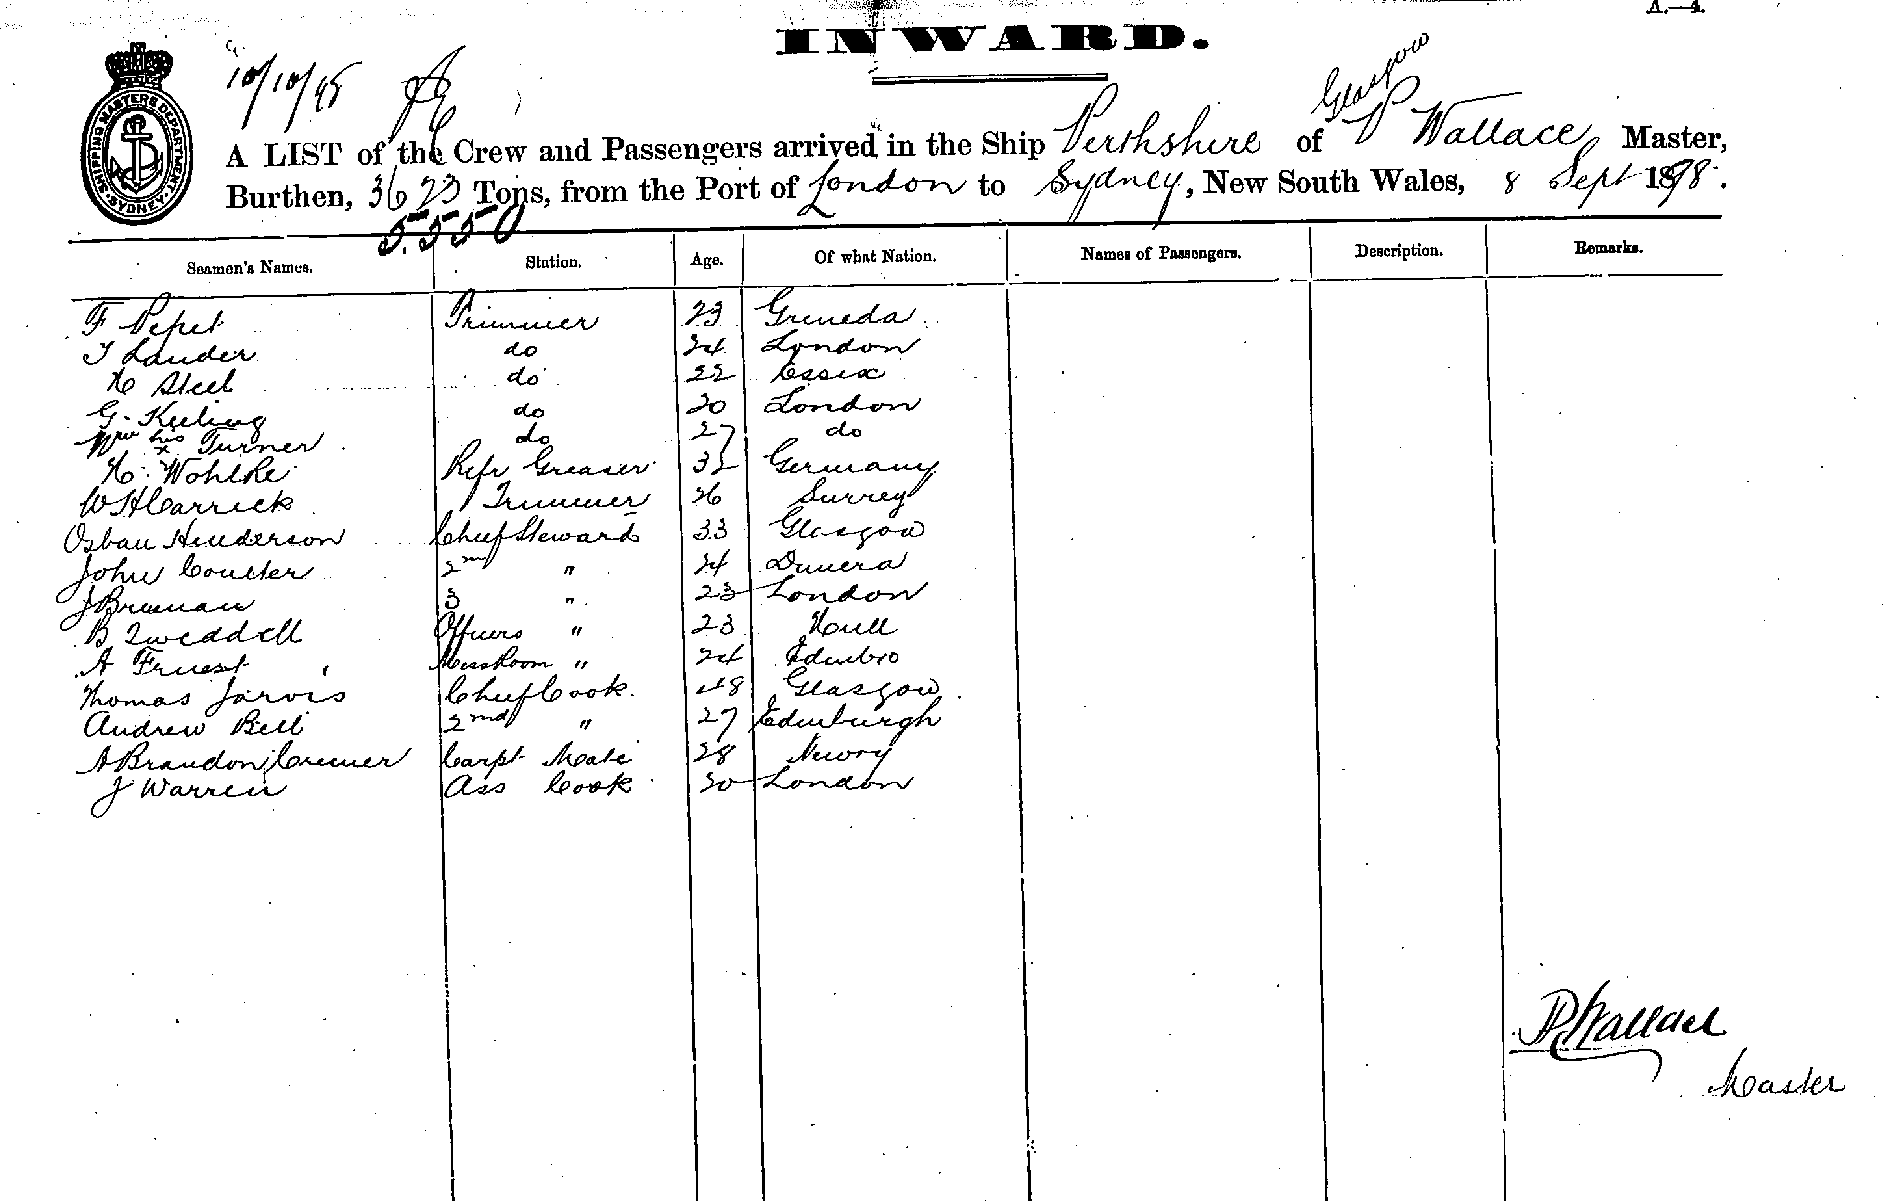 A.—4.
INWARD.
10/10/98
Glasgow
A LIST of the Crew and Passengers arrived in the Ship Perthshire of P Wallace, Master,
Burthen, 3623 Tons, from the Port of London to Sydney, New South Wales, 8 Sept 1898.
5.550
SHIPPING MASTERS DEPARTMENT SYDNEY
Seamen's Names. Station. Age. Of what Nation. Names of Passengers. Description. Remarks.
F Trimmer 23 Greneda
T Lauder do 24 London
H Steel do 22 Essex
G. Keeling do 20 London
Wm his x Turner do 27 do
H. Wohlke Refr Greaser 32 Germany
W H Carrick Trimmer 26 Surrey
Henderson Chief Steward 33 Glasgow
John Coulter 2nd " 24
J Brennan 3 " 23 London
B Tweddell Officers " 23 Hull
A Messroom " 24 Edinbro
Thomas Jarvis Chief Cook. 48 Glasgow
Andrew Bell 2nd " 27 Edinburgh
A Brandon Cremer Carpt Mate 28 Newry
J Warren Ass Cook 20 London
P Wallace
Master